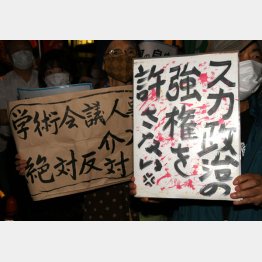 学術会議人事
介入
絶対反対
スカ政治の
強権を
許さない